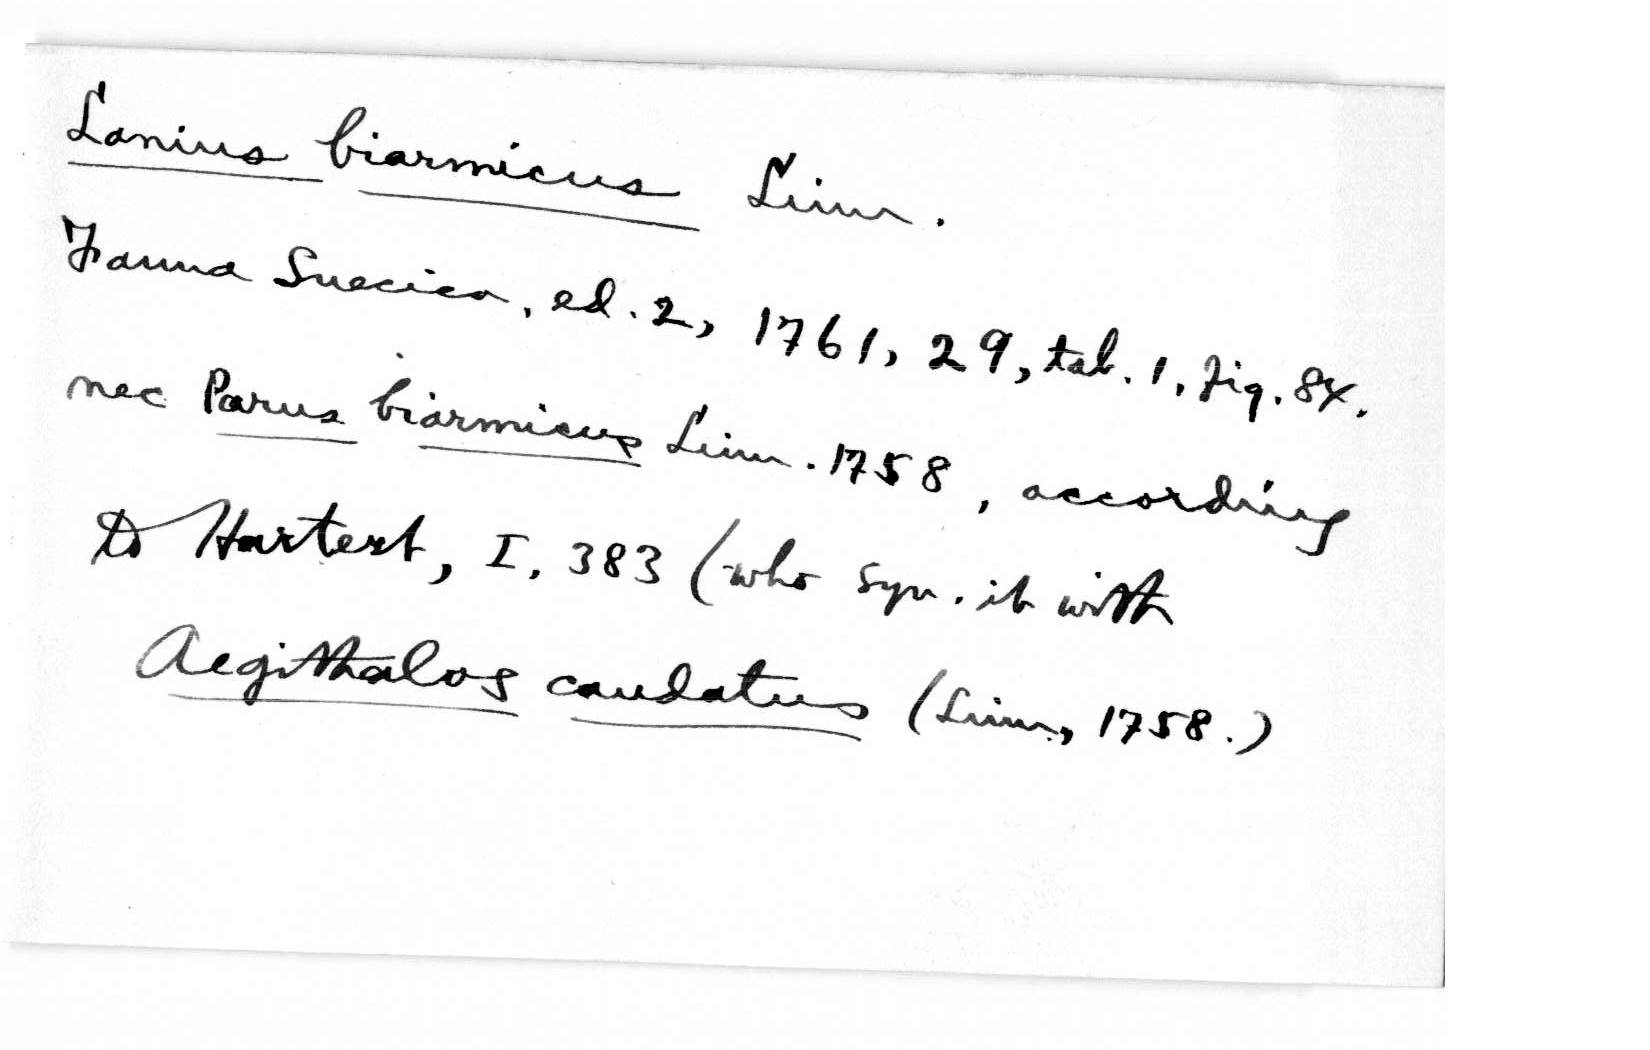 Lanius biarmicus Linn.
Fauna Suecica, ed. 2, 1761, 29, tab. 1, fig. 84.
nec Parus biarmicus Linn. 1758, according
to Hartert, I, 383 (who syn. it with
Aegithalos caudatus (Linn, 1758.)